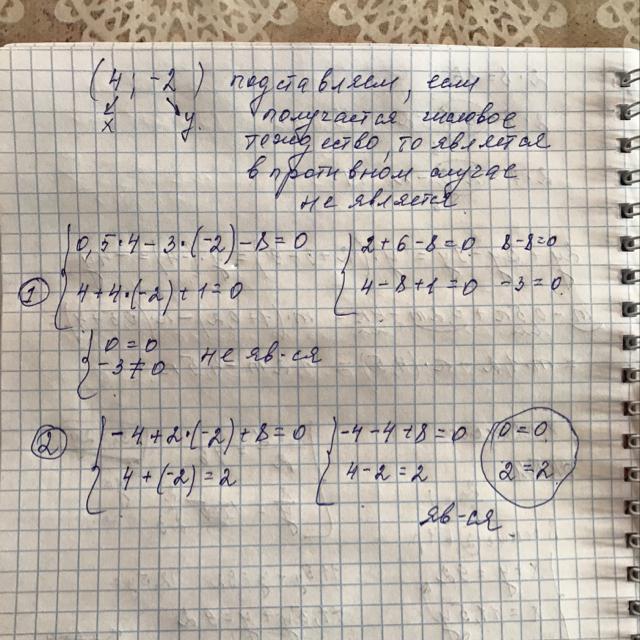 (4; -2) подставляем, если
x y. получается числовое
тождество, то является
в противном случае
не является
① { 0,5·4 - 3·(-2) - 8 = 0 { 2+6-8=0 8-8=0
4+4·(-2)+1=0 4-8+1=0 -3=0
{ 0=0
-3≠0 не яв-ся
② { -4+2·(-2)+8=0 { -4-4+8=0 0=0
4+(-2)=2 4-2=2 2=2
яв-ся.